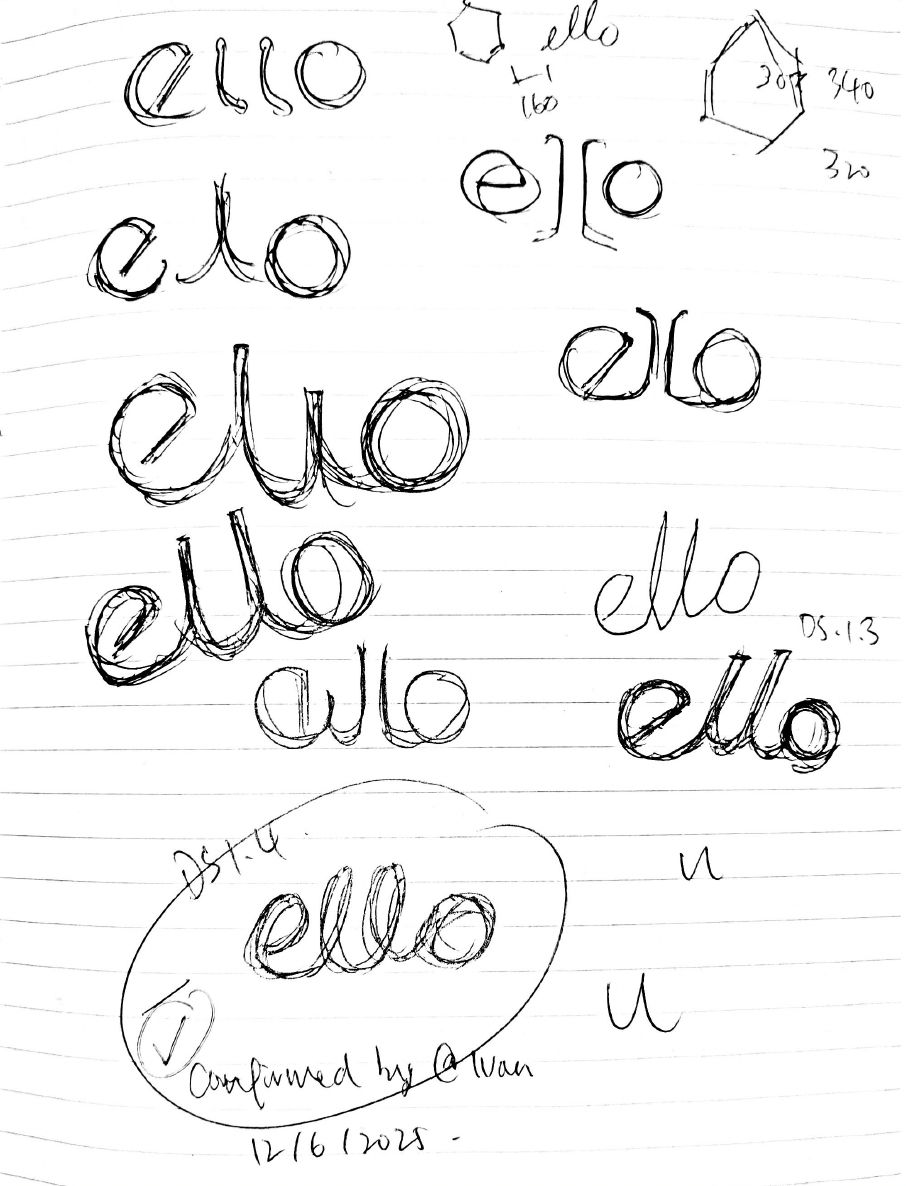 ello
ello
160
307
340
320
ello
elo
ello
ello
ello
ello
DS.1.3
allo
ello
DS1.4
ello
u
u
Confirmed by @Ivan
12/6/2025.